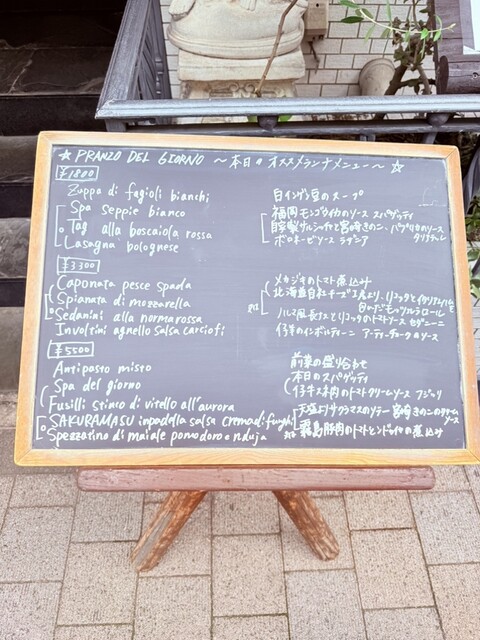 ☆ PRANZO DEL GIORNO 〜本日のオススメランチメニュー〜 ☆
¥1800
Zuppa di fagioli bianchi 白インゲン豆のスープ
Spa seppie bianco 福岡モンゴウイカのソース スパゲッティ
Tag alla boscaiola rossa 自家製サルシッチャと宮崎きのこ、パプリカのソース タリアテッレ
Lasagna bolognese ボロネーゼソース ラザニア
¥3300
Caponata pesce spada メカジキのトマト煮込み
Spianata di mozzarella 北海道白糠チーズ工房より、リコッタと
モッツァレラロール
Sedanini alla norma rossa ノルマ風長ナスとリコッタのトマトソース セダニーニ
Involtini agnello salsa carciofi 仔羊のインボルティーニ アーティチョークのソース
¥5500
Antipasto misto 前菜の盛り合わせ
Spa del giorno 本日のスパゲッティ
Fusilli stinco di vitello all'aurora 仔牛スネ肉のトマトクリームソース フジッリ
SAKURAMASU inpadella salsa crema di funghi サクラマスのソテー 宮崎きのこのクリームソース
Spezzatino di maiale pomodoro e nduja 霧島豚肉のトマトとンドゥイヤの煮込み